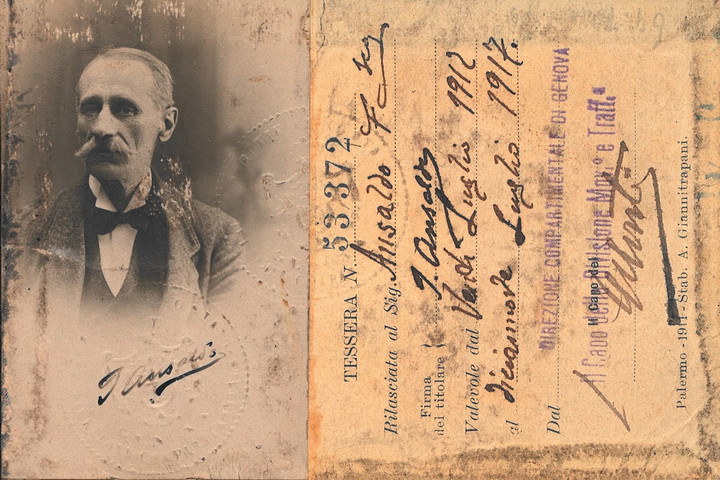 TESSERA N. 53372
Rilasciata al Sig. Ansaldo F
Firma
del titolare
Ansaldo
Valevole dal Luglio 1912
al diciannove Luglio 1917.
Dal
DIREZIONE COMPARTIMENTALE DI GENOVA
Il Capo del
Il Capo della Divisione Mov.° e Traff.°
Palermo - 1911 - Stab. A. Giannitrapani.
Ansaldo